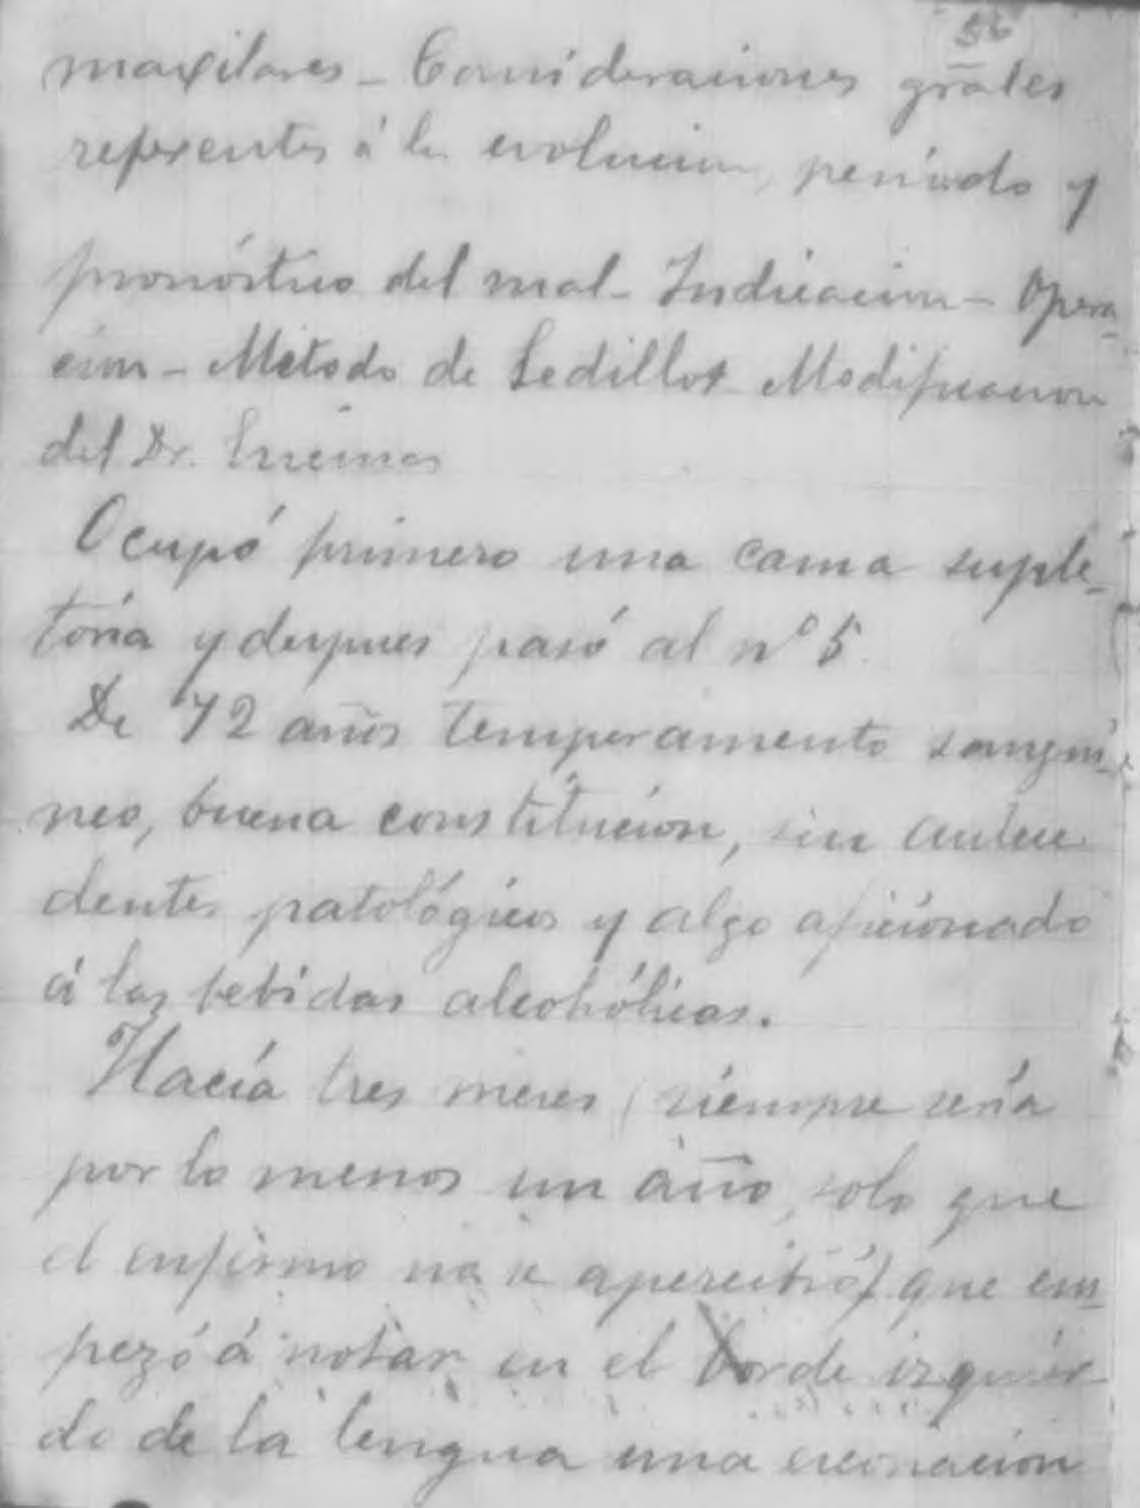 56
maxilares - Consideraciones grales
referentes á la evolucion, periodo y
pronóstico del mal - Indicacion - Opera-
cion - Metodo de Sedillot Modificacion
del Dr. Encinas
Ocupó primero una cama suple-
toria y despues pasó al nº 5.
De 72 años temperamento sanguí-
neo, buena constitucion, sin antece
dentes patológicos y algo aficionado
á las bebidas alcohólicas.
Hacía tres meses (siempre sería
por lo menos un año, solo que
el enfermo no se apercibió) que em-
pezó á notar en el borde izquier-
do de la lengua una escoriacion